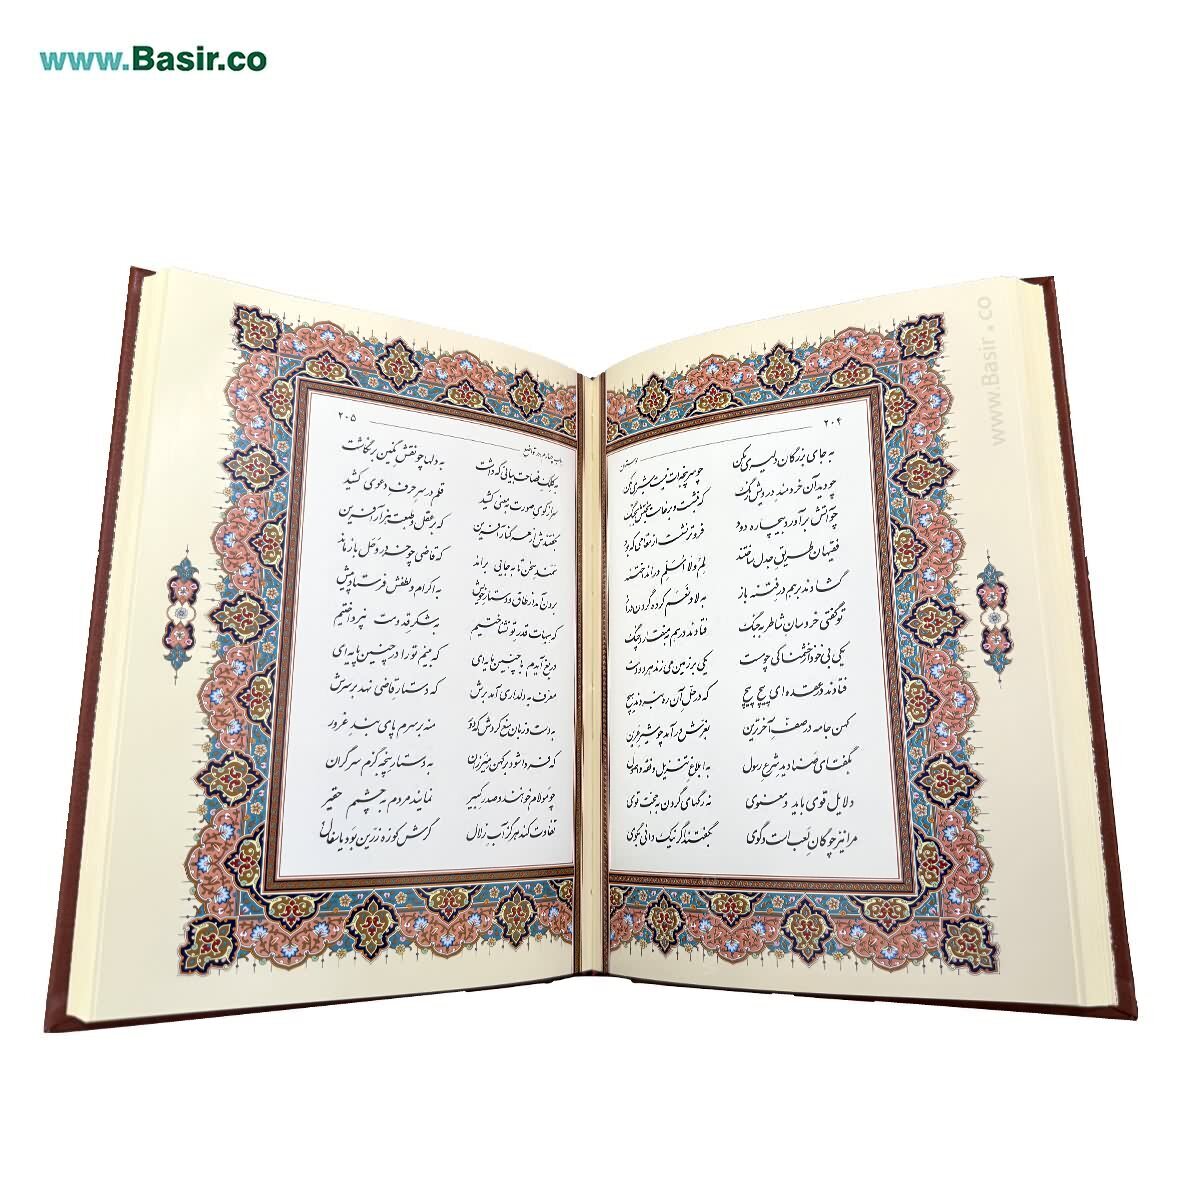 www.Basir.co
www.Basir.co
۲۰۴
بوستان
به جای بزرگان دلیری مکن چو سرپنجه‌ات نیست شیری مکن
چو دید آن خردمند درویش رنگ که بنشست و برخاست بختش به جنگ
چو آتش برآورد بیچاره دود فروتر نشست از مقامی که بود
فقیهان طریق جدل ساختند لم و لا اسلم درانداختند
گشادند بر هم در فتنه باز به لا و نعم کرده گردن دراز
تو گفتی خروسان شاطر به جنگ فتادند در هم به منقار و چنگ
یکی بی خود از خشمناکی چو مست یکی بر زمین می زند هر دو دست
فتادند در عقده ای پیچ پیچ که در حل آن ره نبردند هیچ
کهن جامه در صف آخرترین بغرش درآمد چو شیر عرین
بگفت ای صنادید شرع رسول به ابلاغ تنزیل و فقه و اصول
دلایل قوی باید و معنوی نه رگهای گردن به حجت قوی
مرا نیز چوگان لعب است و گوی بگفتند اگر نیک دانی بگوی
۲۰۵
باب چهارم در تواضع
به کلک فصاحت بیانی که داشت به دلها چو نقش نگین برنگاشت
سر از کوی صورت به معنی کشید قلم در سر حرف دعوی کشید
بگفتندش از هر کنار آفرین که بر عقل و طبعت هزار آفرین
سمند سخن تا به جایی براند که قاضی چو خر در وحل بازماند
برون آمد از طاق و دستار خویش به اکرام و لطفش فرستاد پیش
که هیهات قدر تو نشناختیم به شکر قدومت نپرداختیم
دریغ آیدم با چنین مایه ای که بینم تو را در چنین پایه ای
معرف به دلداری آمد برش که دستار قاضی نهد بر سرش
به دست و زبان منع کردش که دور منه بر سرم پای بند غرور
که فردا شود بر کهن میزران به دستار پنجه گزم سرگران
چو مولام خوانند و صدر کبیر نمایند مردم به چشمم حقیر
تفاوت کند هرگز آب زلال گرش کوزه زرین بود یا سفال